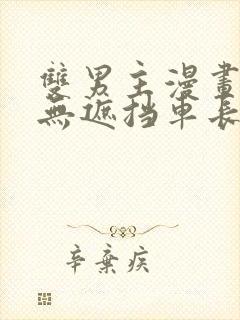 雙男主漫畫
無遮挡車長
辛棄疾